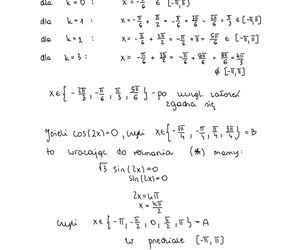 dla k=0: x = -π/6 ∈ [-π,π]
dla k=1: x = -π/6 + π/2 = -π/6 + 3π/6 = 2π/6 = π/3 ∈ [-π,π]
dla k=2: x = -π/6 + 2π/2 = -π/6 + π = 5π/6 ∈ [-π,π]
dla k=3: x = -π/6 + 3π/2 = -π/6 + 9π/6 = 8π/6 = 4π/3
∉ [-π,π]
x∈{-2π/3, -π/6, π/3, 5π/6} - po uwzgl. założeń
zgadza się
Jeżeli cos(2x)=0, czyli x∈{-3π/4, -π/4, π/4, 3π/4} = B
to wracając do równania (*) mamy:
√3 sin(2x)=0
sin(2x)=0
2x=kπ
x=kπ/2
czyli x∈{-π, -π/2, 0, π/2, π} = A
w przedziale [-π,π]